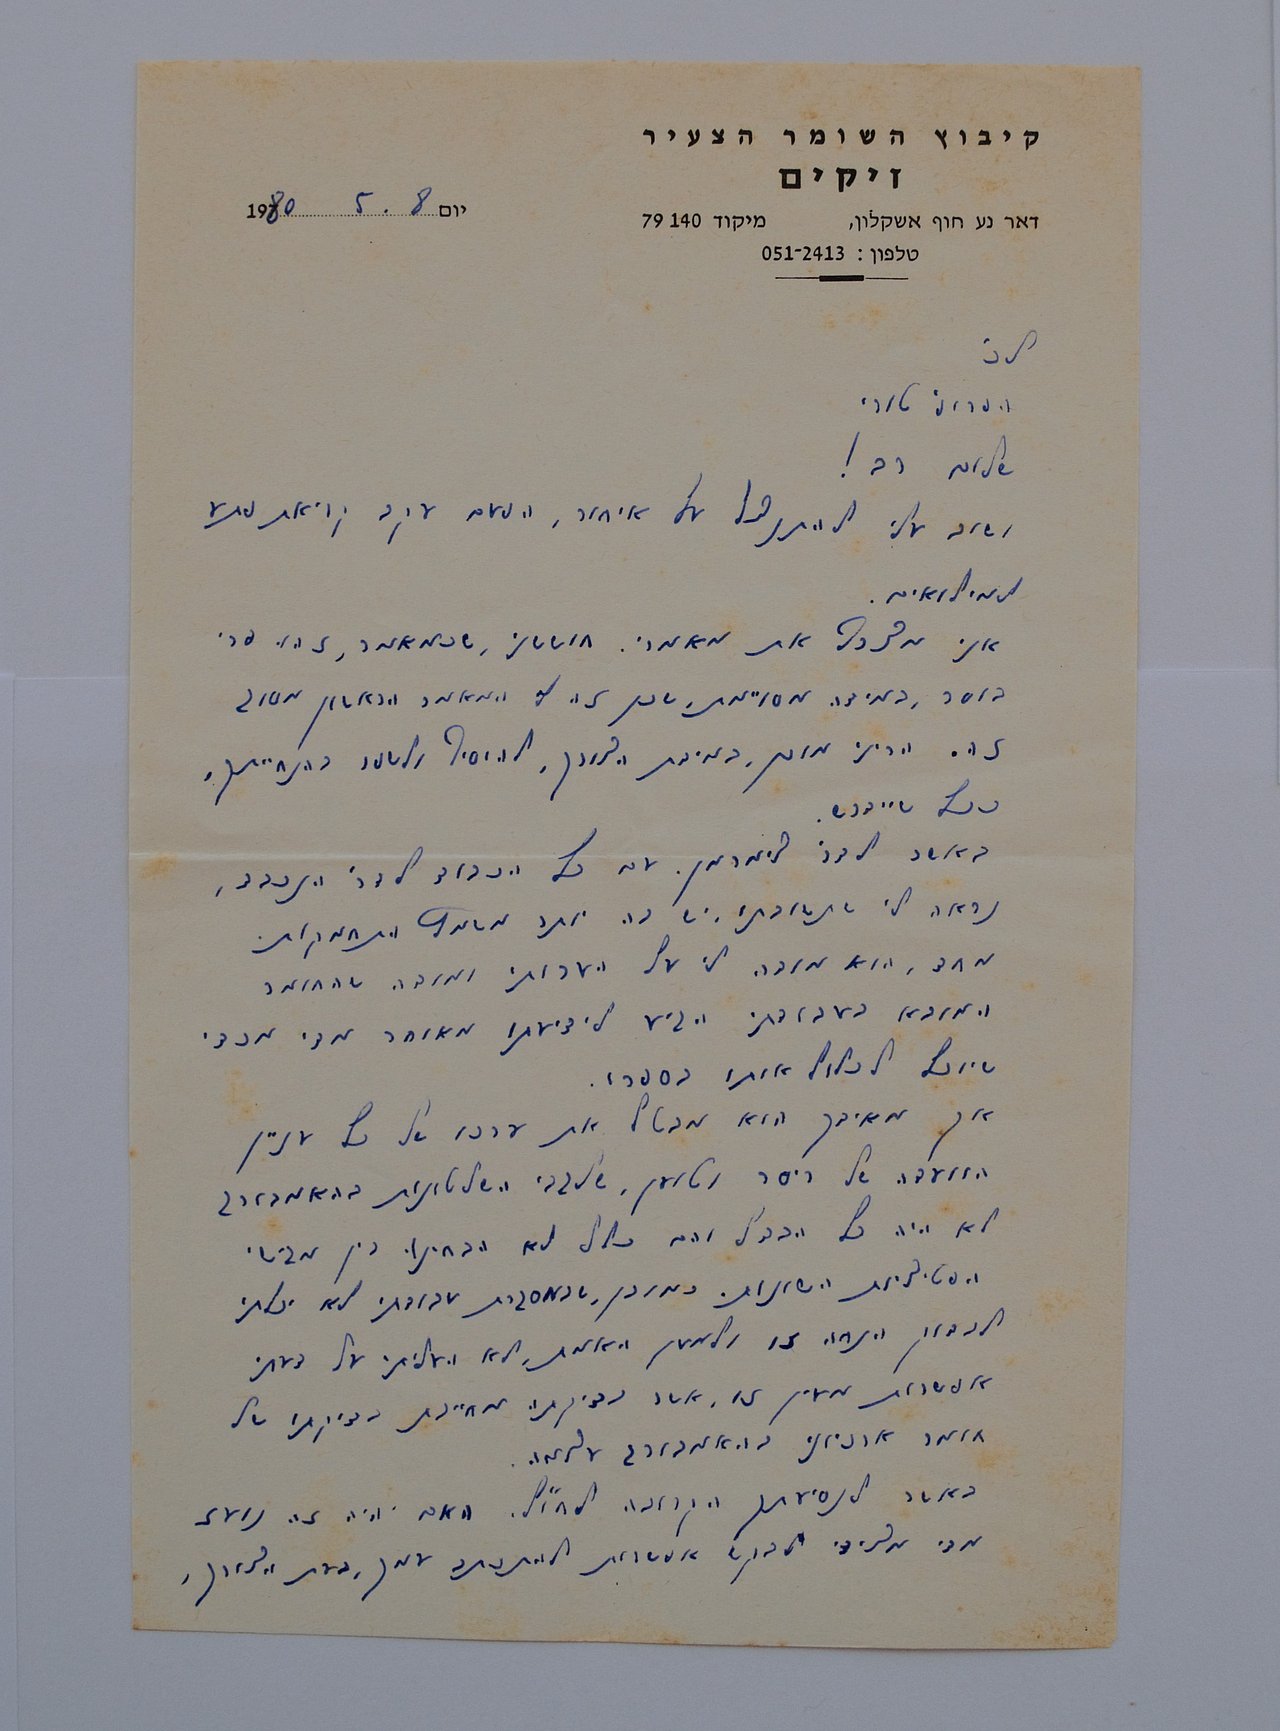 קיבוץ השומר הצעיר
זיקים
דאר נע חוף אשקלון, מיקוד 79140
טלפון: 051-2413
יום 8.5 1980
לכ'
הפרופ' טורי
שלום רב!
ושוב עלי להתנצל על איחור, הפעם עקב קריאת פתע
למילואים.
אני מצרף את מאמרי. חוששני, שכמאמר, זהו פרי
בוסר, במידה מסויימת, שכן זה המאמר הראשון מסוג
זה. הריני מוכן, במידת הצורך, להוסיף ולשפר בהנחייתך,
ככל שיידרש.
באשר לדר' צימרמן. עם כל הכבוד לדר' הנכבד,
נראה לי שתשובתו, יש בה יותר משמץ התחמקות.
מחד, הוא מודה לי על הערותי ומודה שהחומר
המובא בעבודתי הגיע לידיעתו מאוחר מדי מכדי
שיוכל לכלול אותו בספרו.
אך מאידך הוא מבטל את ערכו של כל עניין
הוועדה של ריסר וטוען, שלגבי השלטונות בהאמבורג
לא היה כל הבדל והם כלל לא הבחינו בין מגישי
הפטיציות השונות. כמובן, שבמסגרת עבודתי לא יכולתי
לבדוק הנחה זו ולמען האמת, לא העליתי על דעתי
אפשרות מעין זו, אשר בדיקתה מחייבת בדיקתו של
חומר ארכיוני בהאמבורג עצמה.
באשר לנסיעתך הקרובה לחו"ל. האם יהיה זה נועז
מדי מצידי לבקש אפשרות להתכתב עמך, בעת הצורך,